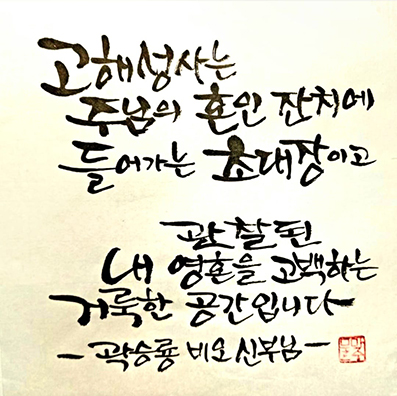 고해성사는
주님의 혼인 잔치에
들어가는 초대장이고
관찰된
내 영혼을 고백하는
거룩한 공간입니다
- 곽승룡 비오 신부님 -